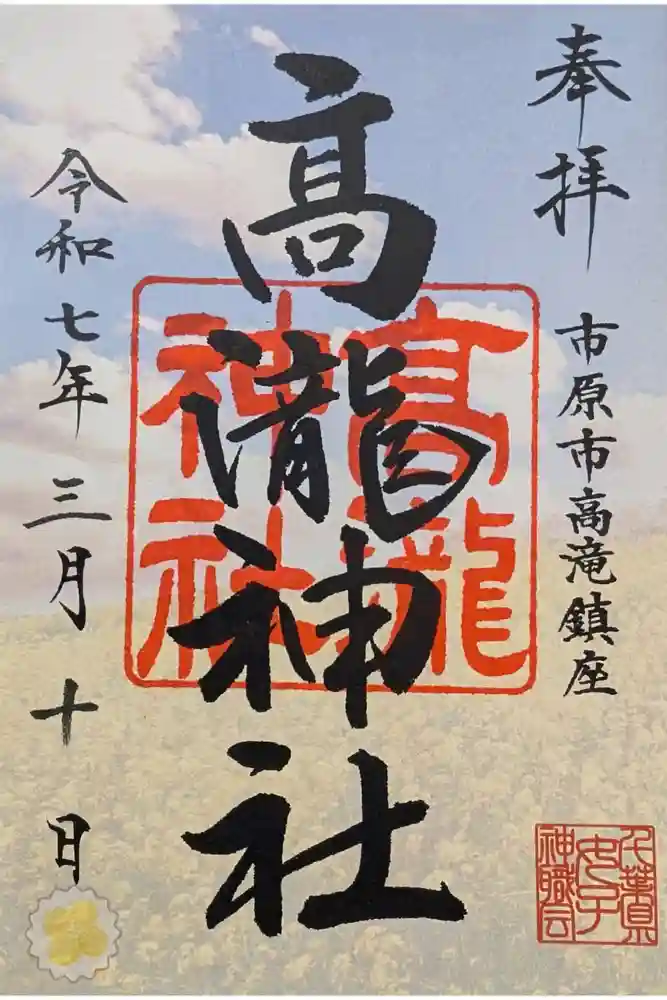 奉拝
市原市高滝鎮座
高瀧神社
高瀧
神社
令和七年三月十日
千葉県
女子
神職会